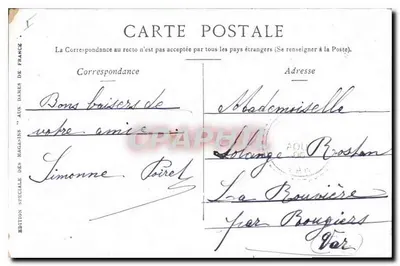 CARTE POSTALE
La Correspondance au recto n'est pas acceptée par tous les pays étrangers (Se renseigner à la Poste).
Correspondance
Adresse
EDITION SPECIALE DES MAGASINS " AUX DAMES DE FRANCE "
Bons baisers de
votre amie
Simonne Poiret
Mademoiselle
Solange Rostan
La Rouvière
par Rougiers
(Var)